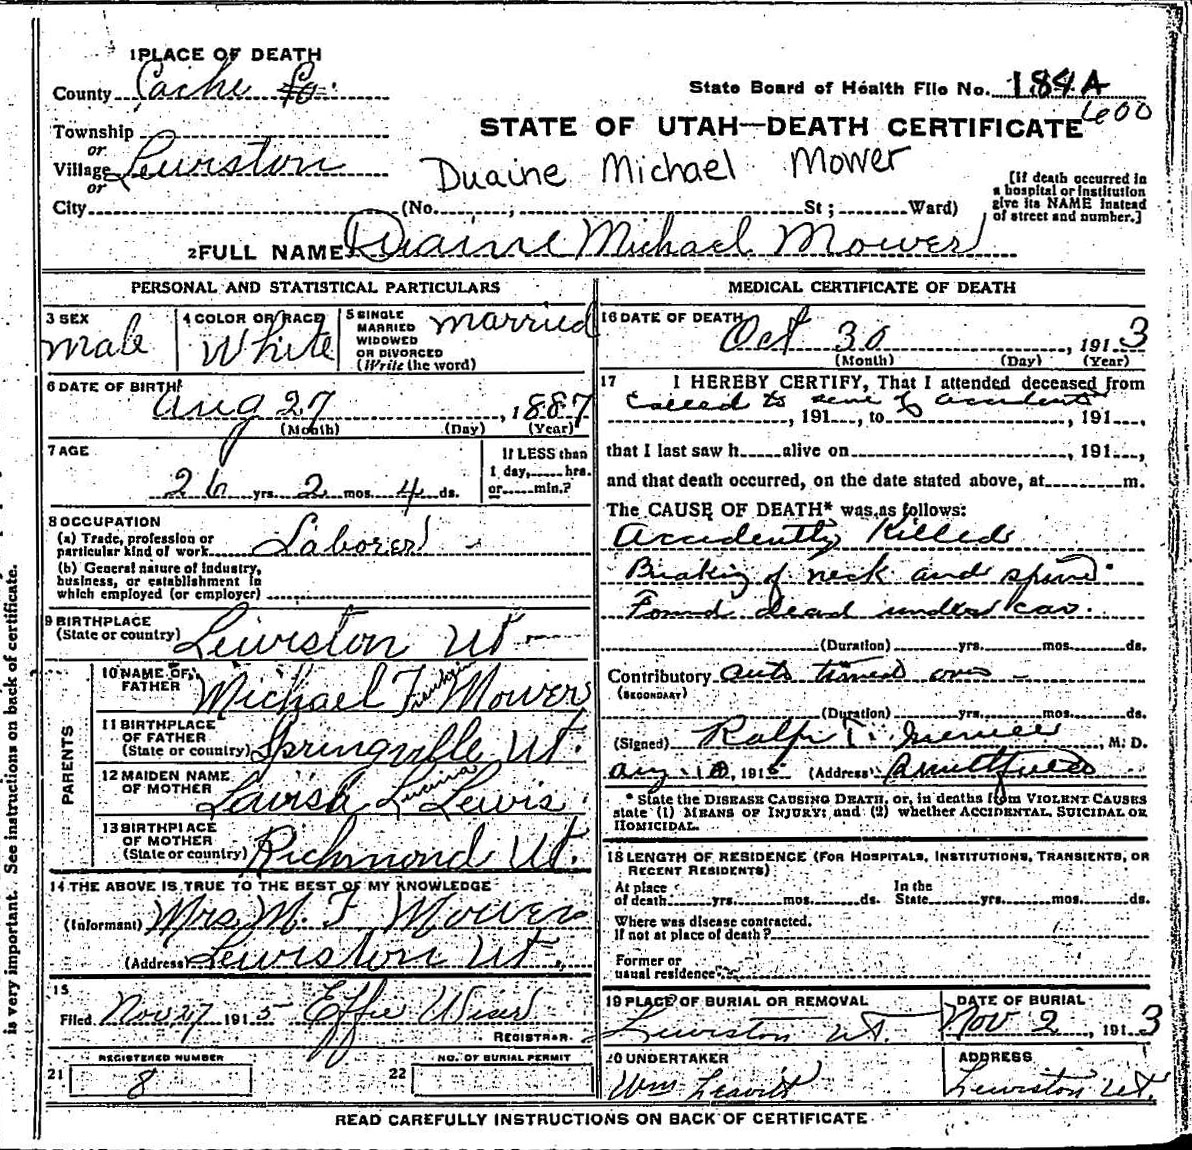 1 PLACE OF DEATH
County Cache Co.
State Board of Health File No. 184 A
600
STATE OF UTAH—DEATH CERTIFICATE
Township
or
Village Lewiston
or
Duaine Michael Mower
[If death occurred in
a hospital or institution
give its NAME instead
of street and number.]
City (No. ; St ; Ward)
2 FULL NAME Duaine Michael Mower
PERSONAL AND STATISTICAL PARTICULARS
3 SEX
male
4 COLOR OR RACE
White
5 SINGLE
MARRIED
WIDOWED
OR DIVORCED
(Write the word)
married
6 DATE OF BIRTH
Aug 27, 1887
(Month) (Day) (Year)
7 AGE
26 yrs. 2 mos. 4 ds.
If LESS than
1 day, hrs.
or min.?
8 OCCUPATION
(a) Trade, profession or
particular kind of work Laborer
(b) General nature of industry,
business, or establishment in
which employed (or employer)
9 BIRTHPLACE
(State or country) Lewiston Ut
PARENTS
10 NAME OF
FATHER Michael F. Mower
11 BIRTHPLACE
OF FATHER
(State or country) Springville Ut.
12 MAIDEN NAME
OF MOTHER Lavisa Lucina Lewis
13 BIRTHPLACE
OF MOTHER
(State or country) Richmond Ut.
14 THE ABOVE IS TRUE TO THE BEST OF MY KNOWLEDGE
(Informant) Mrs M. F Mower
(Address) Lewiston Ut.
15
Filed Nov 27 1915 Effie Wiser
REGISTRAR.
REGISTERED NUMBER
21 8
NO. OF BURIAL PERMIT
22
MEDICAL CERTIFICATE OF DEATH
16 DATE OF DEATH
Oct 30, 1913
(Month) (Day) (Year)
17 I HEREBY CERTIFY, That I attended deceased from
Called to scene of accident
, 191 , to , 191 ,
that I last saw h alive on , 191 ,
and that death occurred, on the date stated above, at m.
The CAUSE OF DEATH* was as follows:
Accidently Killed
Breaking of neck and spine
Found dead under car.
(Duration) yrs. mos. ds.
Contributory auto turned over
(SECONDARY)
(Duration) yrs. mos. ds.
(Signed) Ralph T. , M. D.
Aug 10, 1915 (Address) Smithfield
* State the DISEASE CAUSING DEATH, or, in deaths from VIOLENT CAUSES
state (1) MEANS OF INJURY; and (2) whether ACCIDENTAL, SUICIDAL OR
HOMICIDAL.
18 LENGTH OF RESIDENCE (FOR HOSPITALS, INSTITUTIONS, TRANSIENTS, OR
RECENT RESIDENTS)
At place
of death yrs. mos. ds.
In the
State yrs. mos. ds.
Where was disease contracted.
If not at place of death?
Former or
usual residence
19 PLACE OF BURIAL OR REMOVAL
Lewiston Ut.
DATE OF BURIAL
Nov 2, 1913
20 UNDERTAKER
Wm Leavitt
ADDRESS
Lewiston Ut.
READ CAREFULLY INSTRUCTIONS ON BACK OF CERTIFICATE
is very important. See instructions on back of certificate.